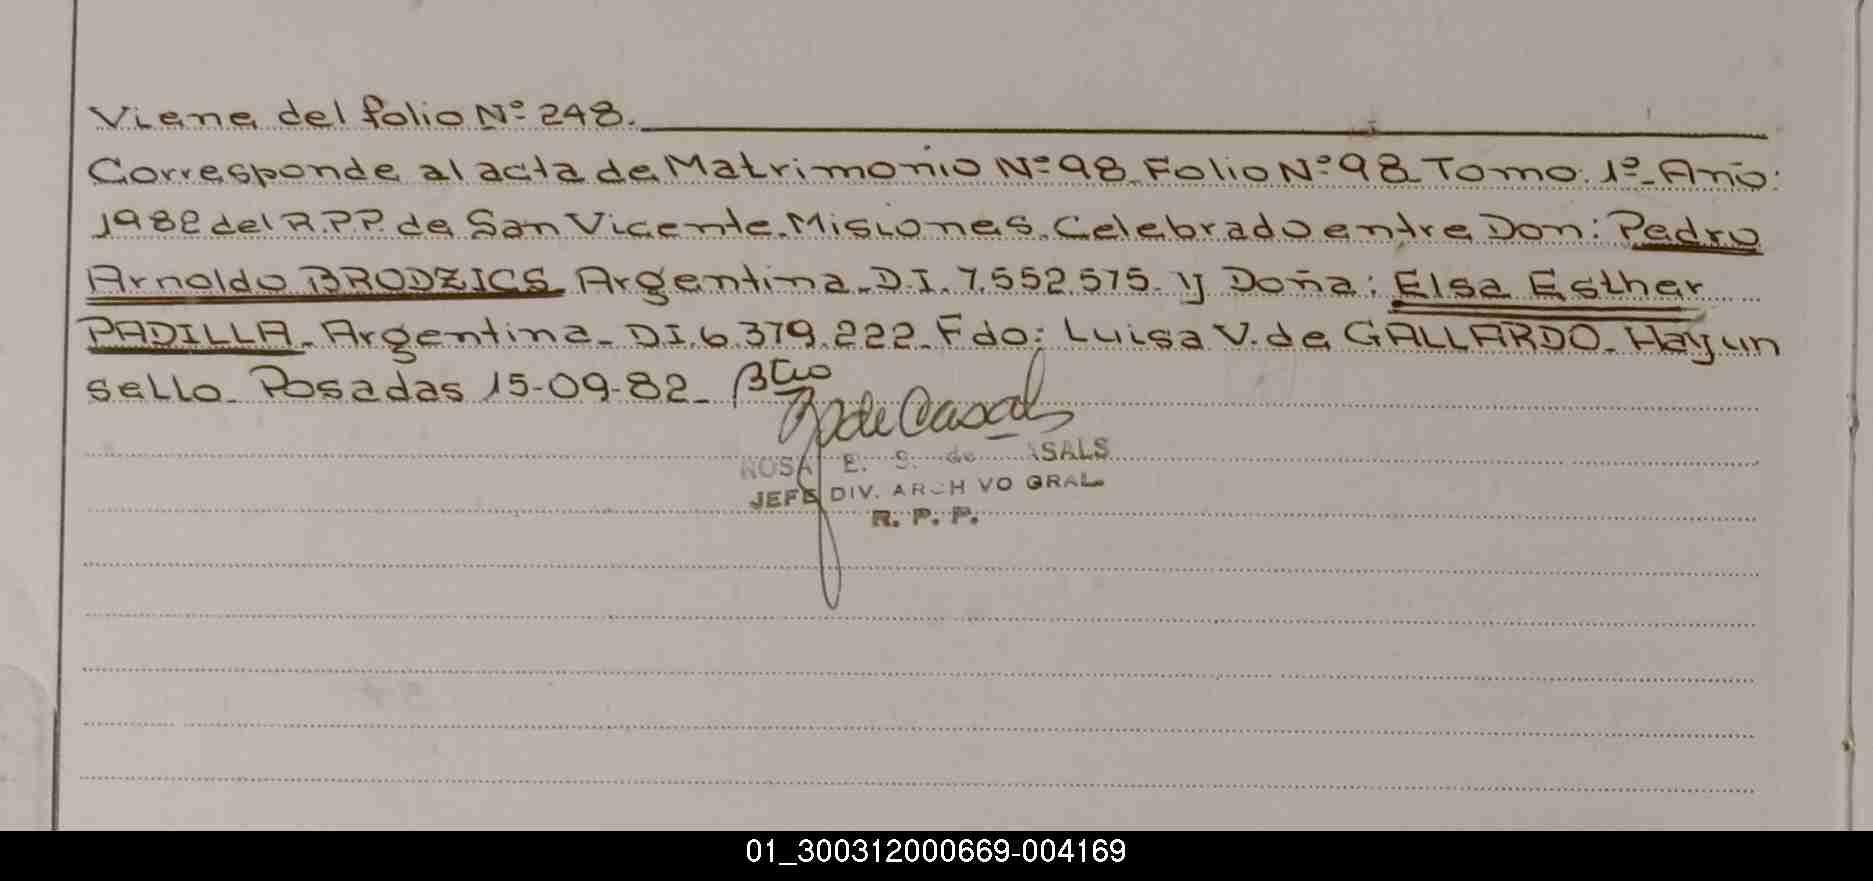 Viene del folio Nº 248.
Corresponde al acta de Matrimonio Nº 98 Folio Nº 98 Tomo. 1º - Año:
1982 del R.P.P. de San Vicente. Misiones. Celebrado entre Don: Pedro
Arnoldo BRODZICS Argentina - D.I. 7.552.575. y Doña: Elsa Esther
PADILLA - Argentina - D.I. 6.379.222 - Fdo: Luisa V. de GALLARDO. Hay un
sello. Posadas 15-09-82 -
de Casals
ROSA E. S. de ASALS
JEFE DIV. ARCH VO GRAL
R. P. P.
01_300312000669-004169